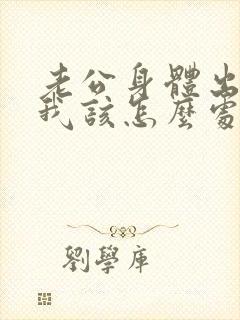 老公身體出
我該怎麼處
劉學庫